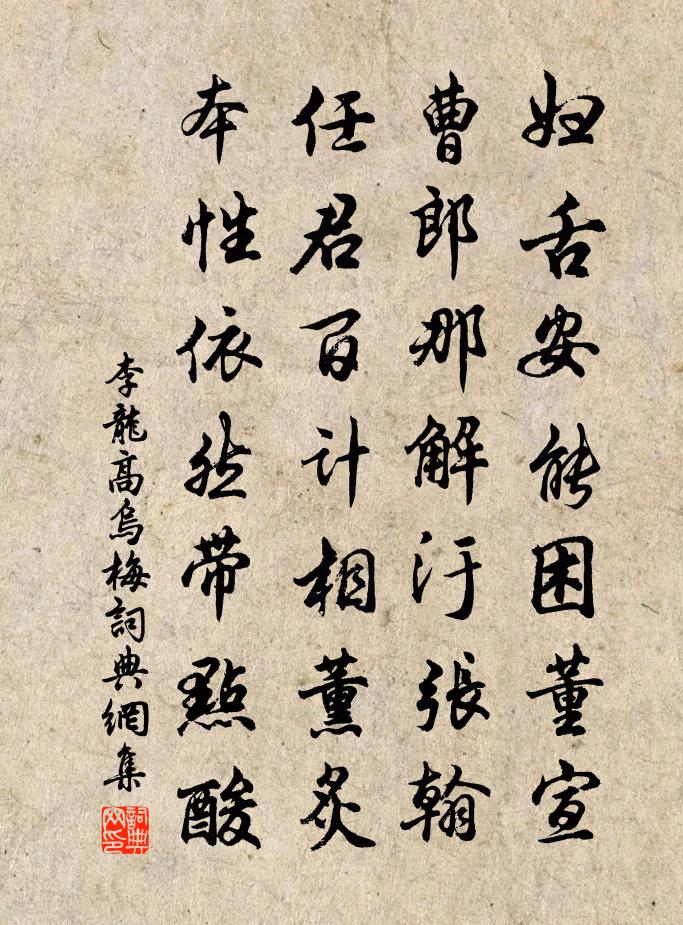 妲舌安能困董宣
曹郎那解汙張翰
任君百計相薰炙
本性依然帶點酸
李龍高烏梅詞典網集
詞典網印